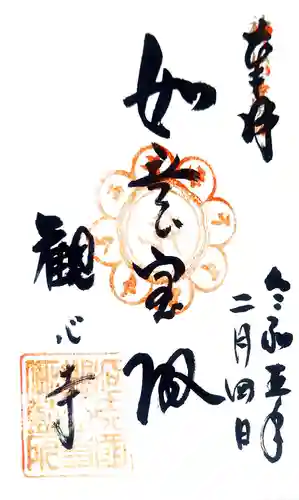 奉拝
如意宝殿
令和五年
二月四日
観心寺